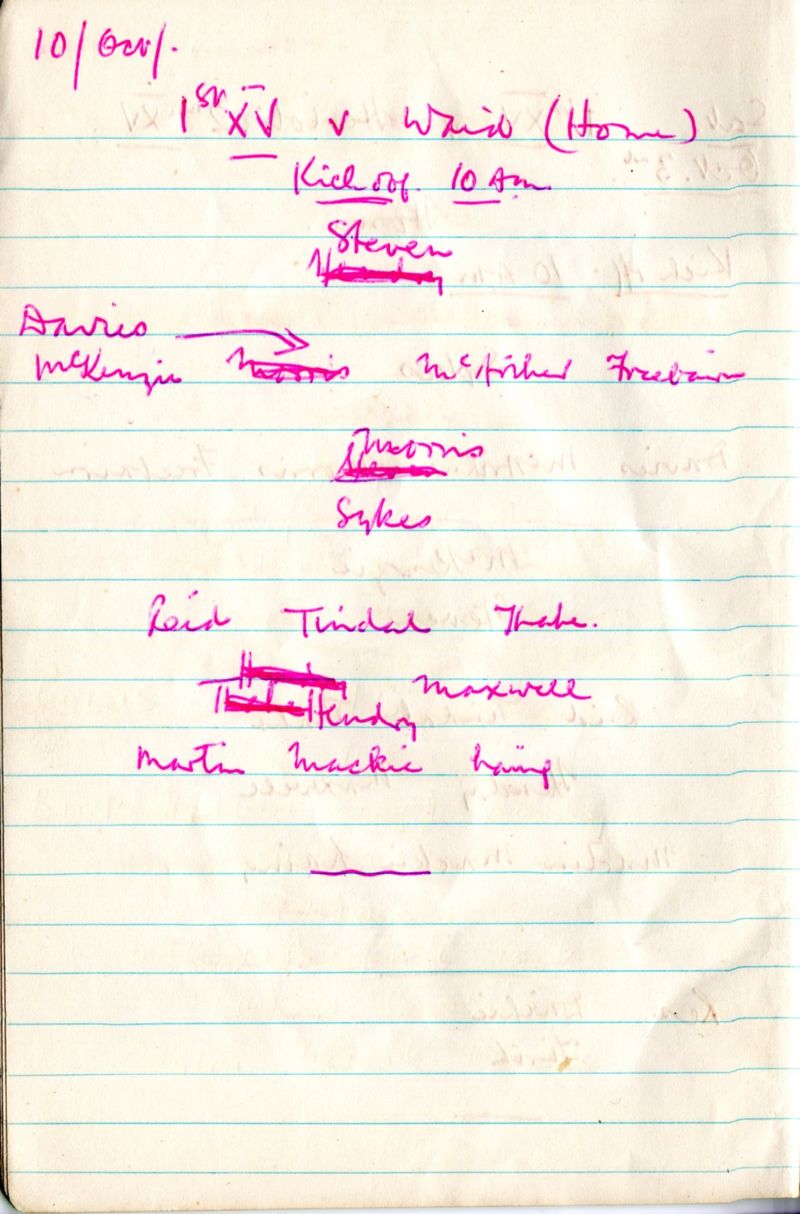 10/Oct/.
1st XV v Waid (Home)
Kick off. 10 Am
Steven
Hendry
Davies
McKenzie Morris McArthur Freebairn
Morris
Steven
Sykes
Reid Tindal Thabe.
Maxwell
Hendry
Martin Mackie Laing